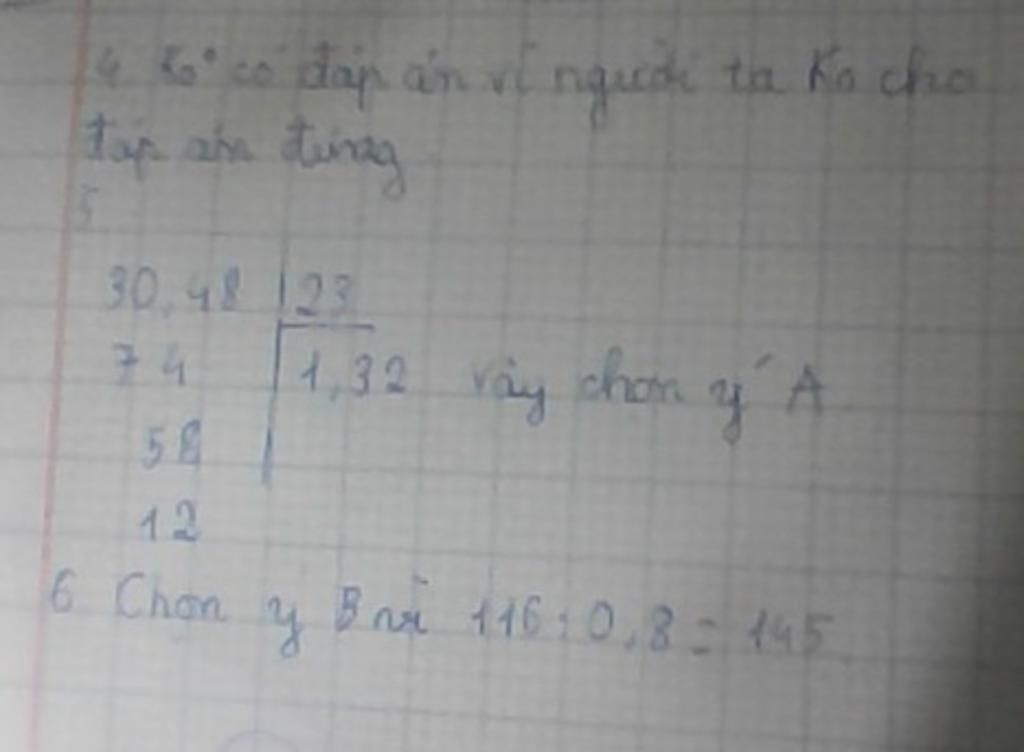 4 Ko có đáp án vì người ta Ko cho
đáp án đúng
5
30,48 23
74 1,32 vậy chọn ý A
58
12
6 Chọn ý B vì 116:0,8=145